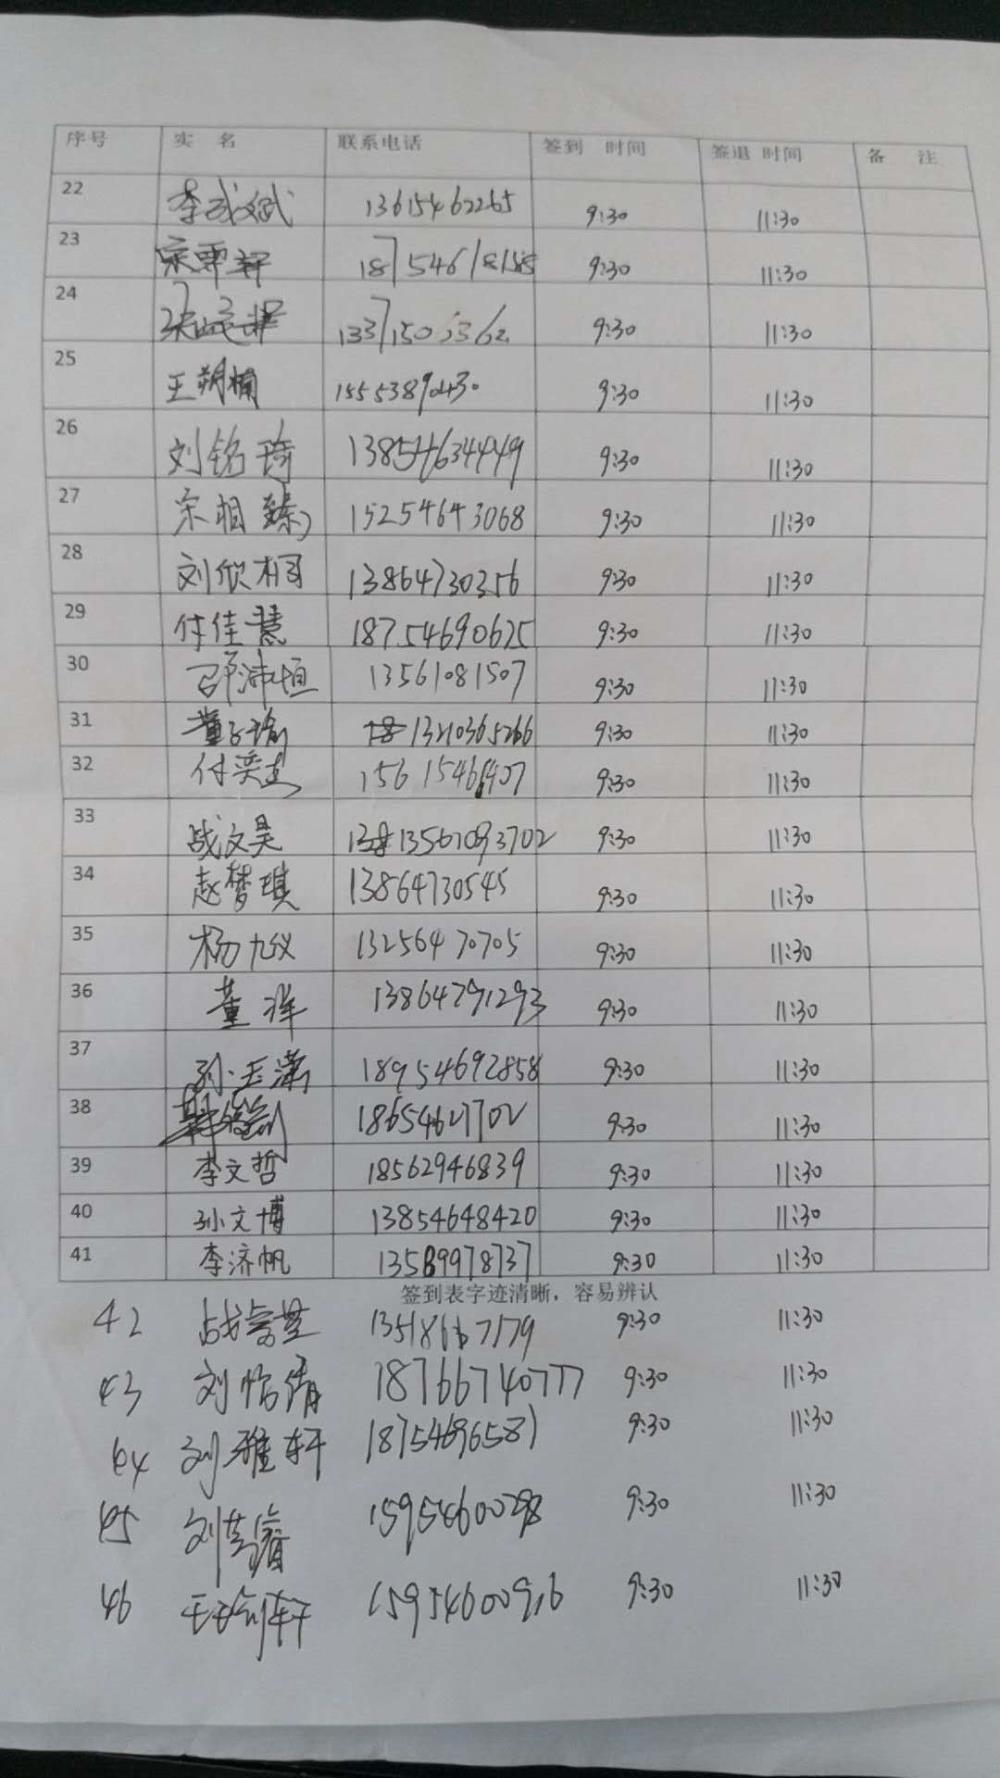 序号 实 名 联系电话 签到 时间 签退 时间 备 注
22 李武斌 13615462265 9:30 11:30
23 宋霈轩 9:30 11:30
24 9:30 11:30
25 王朔楠 9:30 11:30
26 刘铭琦 13854634449 9:30 11:30
27 宋相臻 15254643068 9:30 11:30
28 刘欣桐 13864730356 9:30 11:30
29 付佳慧 18754690625 9:30 11:30
30 邵沛恒 13561081507 9:30 11:30
31 董子瑜 13210365266 9:30 11:30
32 付奕杰 9:30 11:30
33 战文昊 13561093702 9:30 11:30
34 赵梦琪 13864730545 9:30 11:30
35 杨九仪 13256470705 9:30 11:30
36 董洋 13864791293 9:30 11:30
37 孙玉潇 18954692858 9:30 11:30
38 9:30 11:30
39 李文哲 18562946839 9:30 11:30
40 孙文博 13854648420 9:30 11:30
41 李济帆 13589978737 9:30 11:30
签到表字迹清晰，容易辨认
42 9:30 11:30
43 刘怡倩 18766740777 9:30 11:30
44 刘雅轩 18754696581 9:30 11:30
45 9:30 11:30
46 15954600916 9:30 11:30